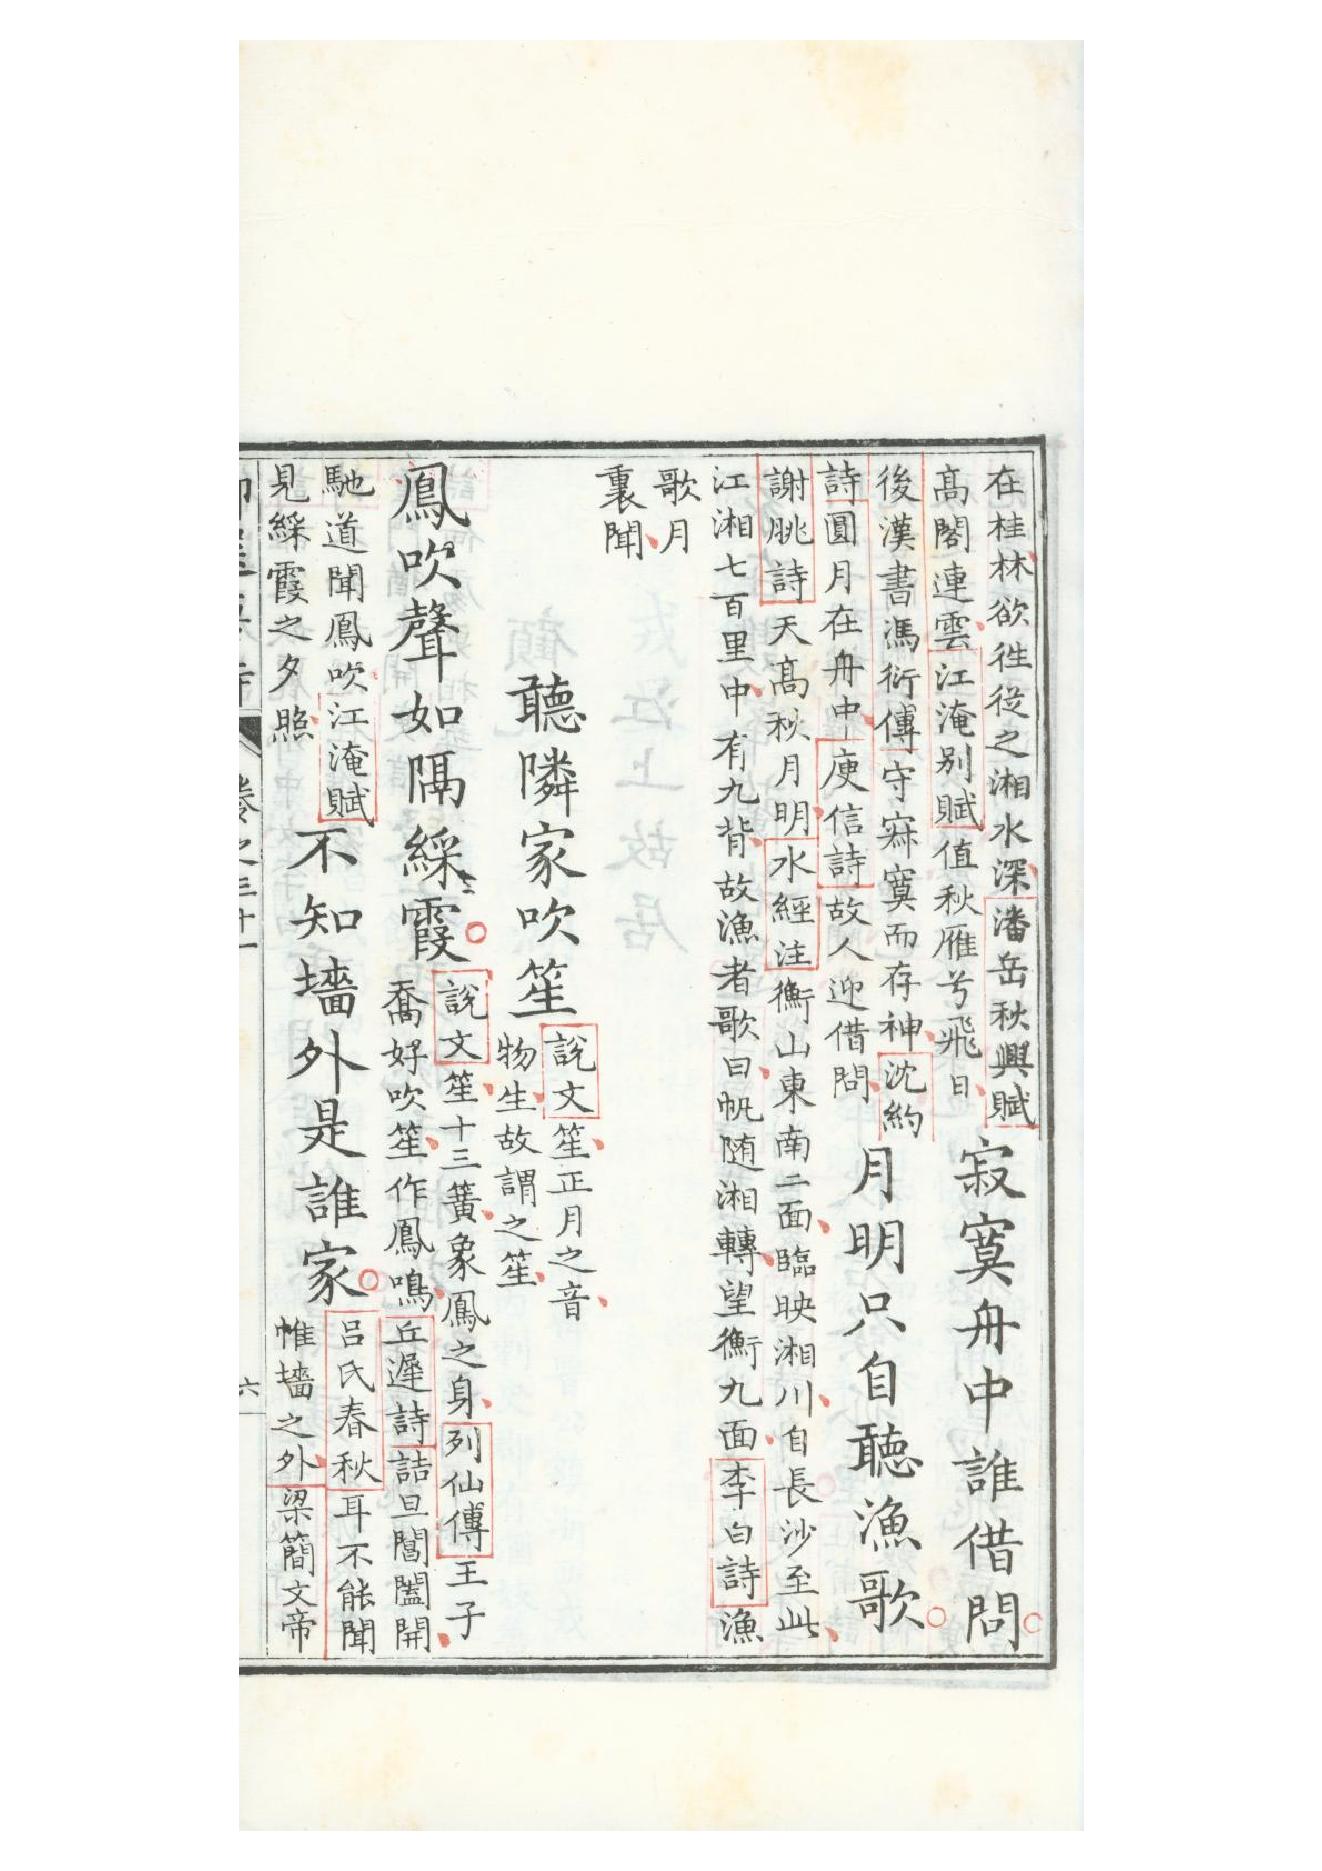 在桂林欲徃從之湘水深潘岳秋興賦
高閣連雲江淹别賦值秋雁兮飛日
寂寞舟中誰借問
後漢書馮衍傳守寂寞而存神沈約
詩圓月在舟中庾信詩故人迎借問
月明只自聽漁歌
謝朓詩天高秋月明水經注衡山東南二面臨映湘川自長沙至此
江湘七百里中有九背故漁者歌曰帆随湘轉望衡九面李白詩漁
歌月
裏聞
聽隣家吹笙
說文笙正月之音
物生故謂之笙
鳳吹聲如隔綵霞
說文笙十三簧象鳳之身列仙傳王子
喬好吹笙作鳳鳴丘遲詩詰旦閶闔開
馳道聞鳳吹江淹賦
見綵霞之夕照
不知墻外是誰家
吕氏春秋耳不能聞
帷墻之外梁簡文帝
卷之三十一
六